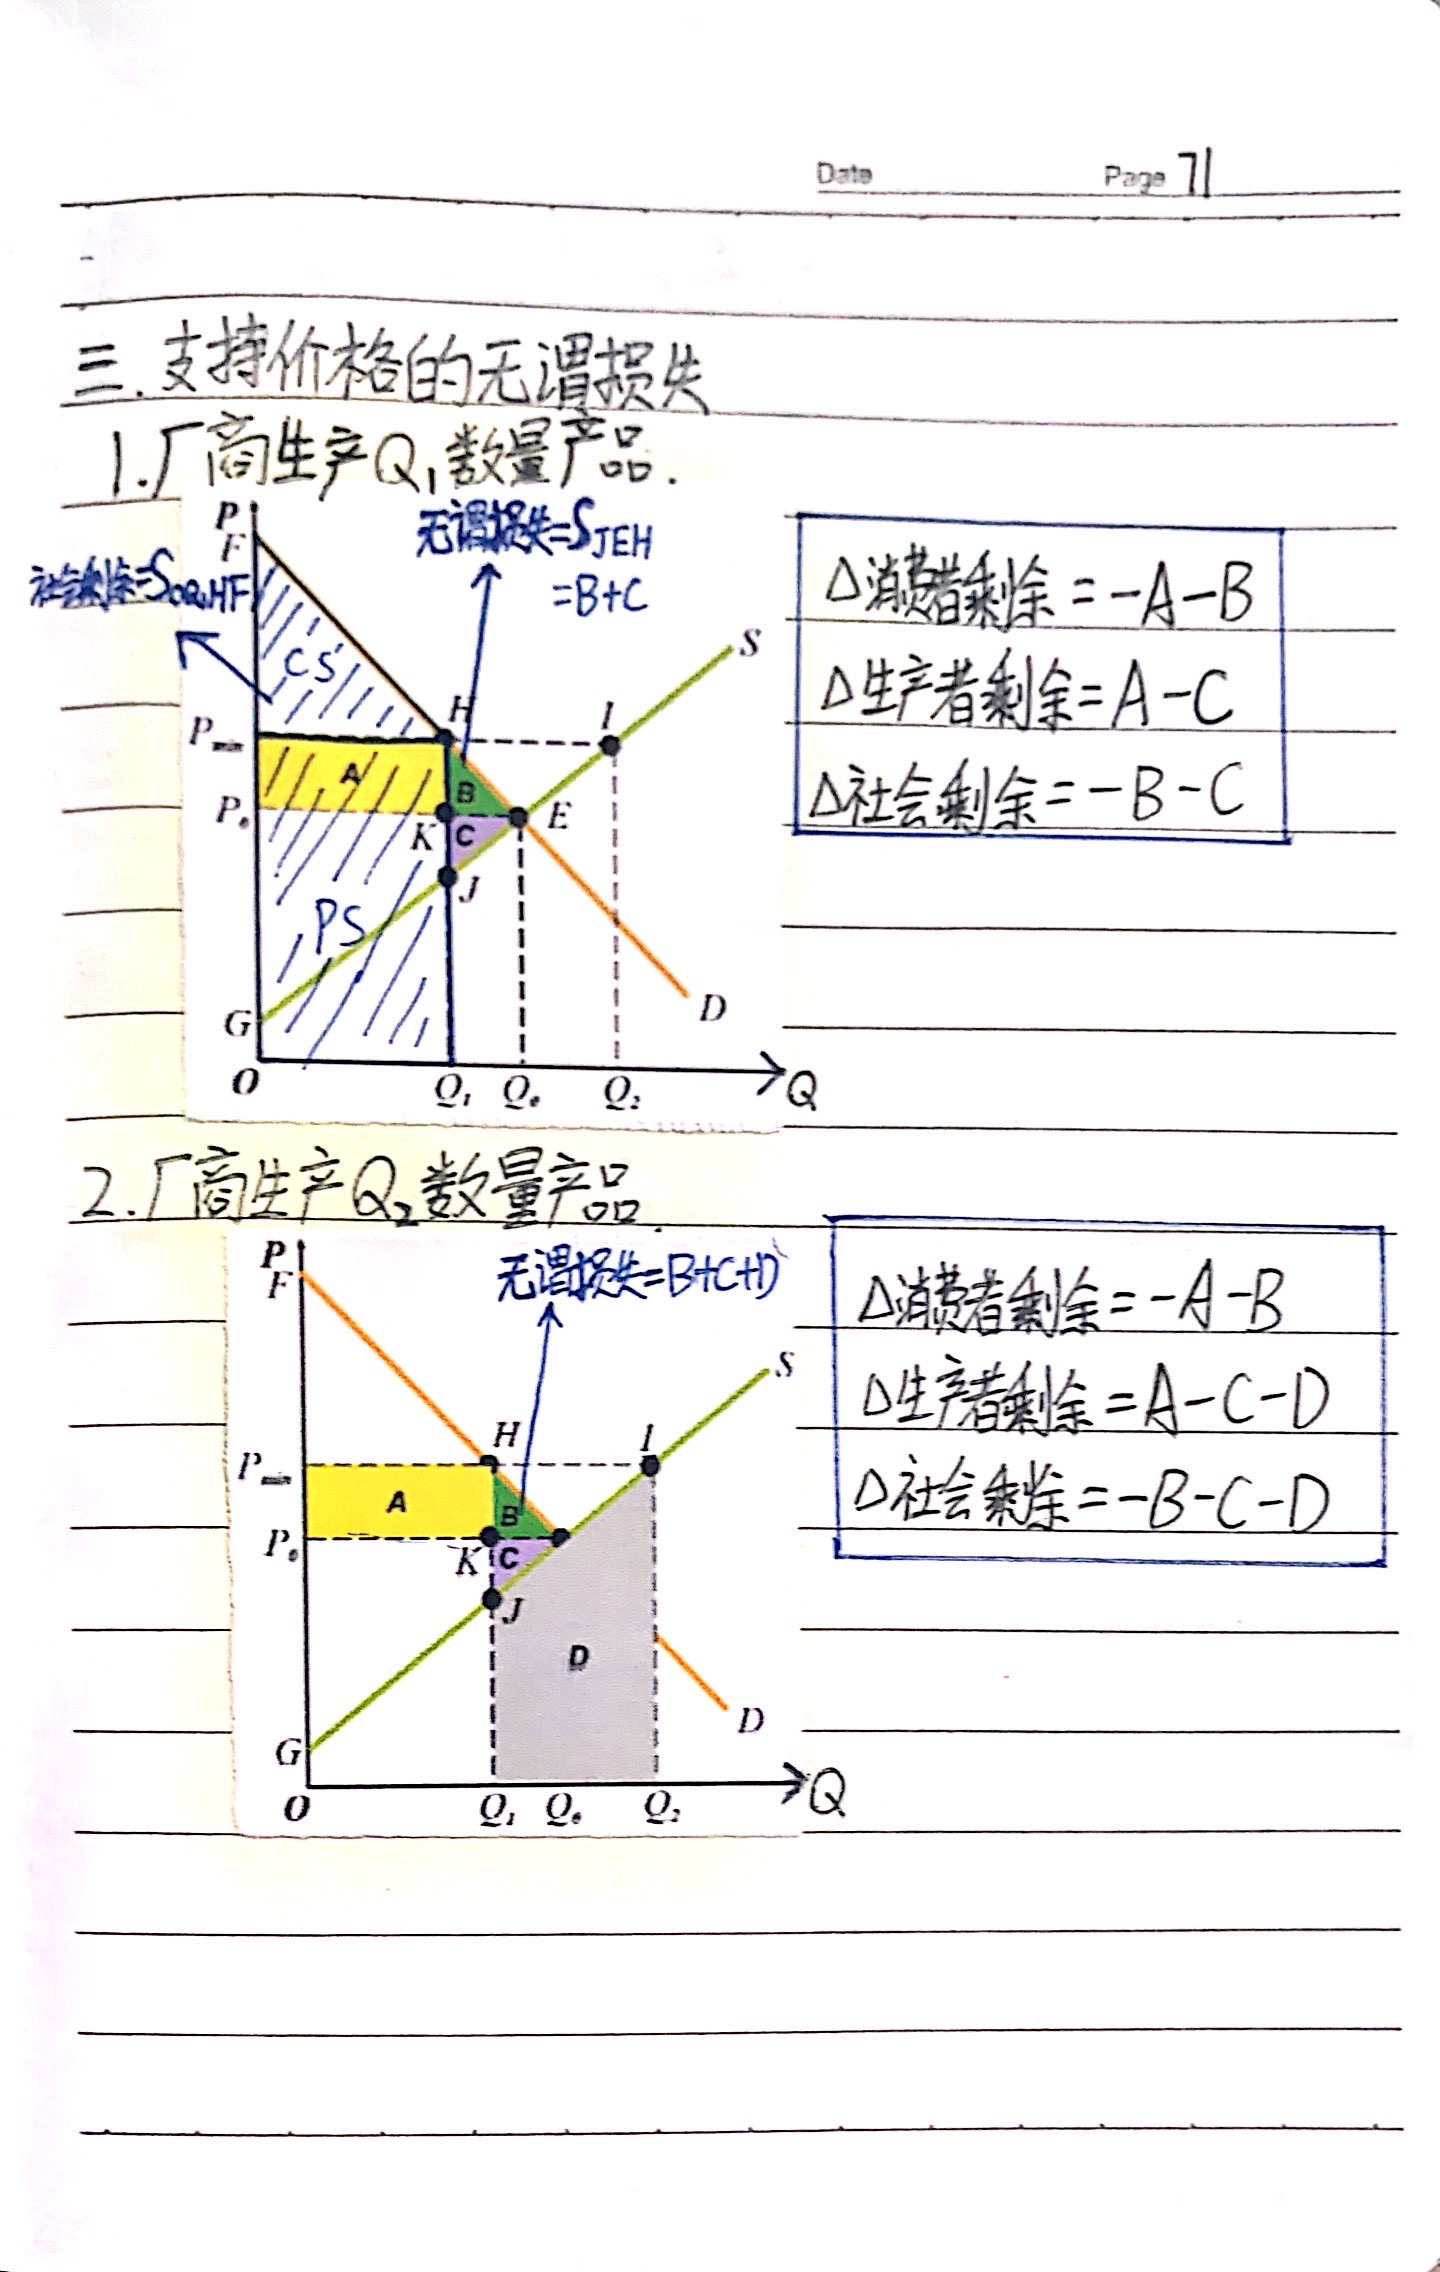 Date Page 71
三.支持价格的无谓损失
1.厂商生产Q₁数量产品.
P
F
无谓损失=S_JEH
=B+C
社会剩余=S_OQ₁HF
CS
S
H
I
P_min
A
B
P_e
K
C
E
J
PS
G
D
O
Q₁
Q_e
Q₂
Q
Δ消费者剩余=-A-B
Δ生产者剩余=A-C
Δ社会剩余=-B-C
2.厂商生产Q₂数量产品.
P
F
无谓损失=B+C+D
S
H
I
P_min
A
B
P_e
K
C
J
D
D
G
O
Q₁
Q_e
Q₂
Q
Δ消费者剩余=-A-B
Δ生产者剩余=A-C-D
Δ社会剩余=-B-C-D